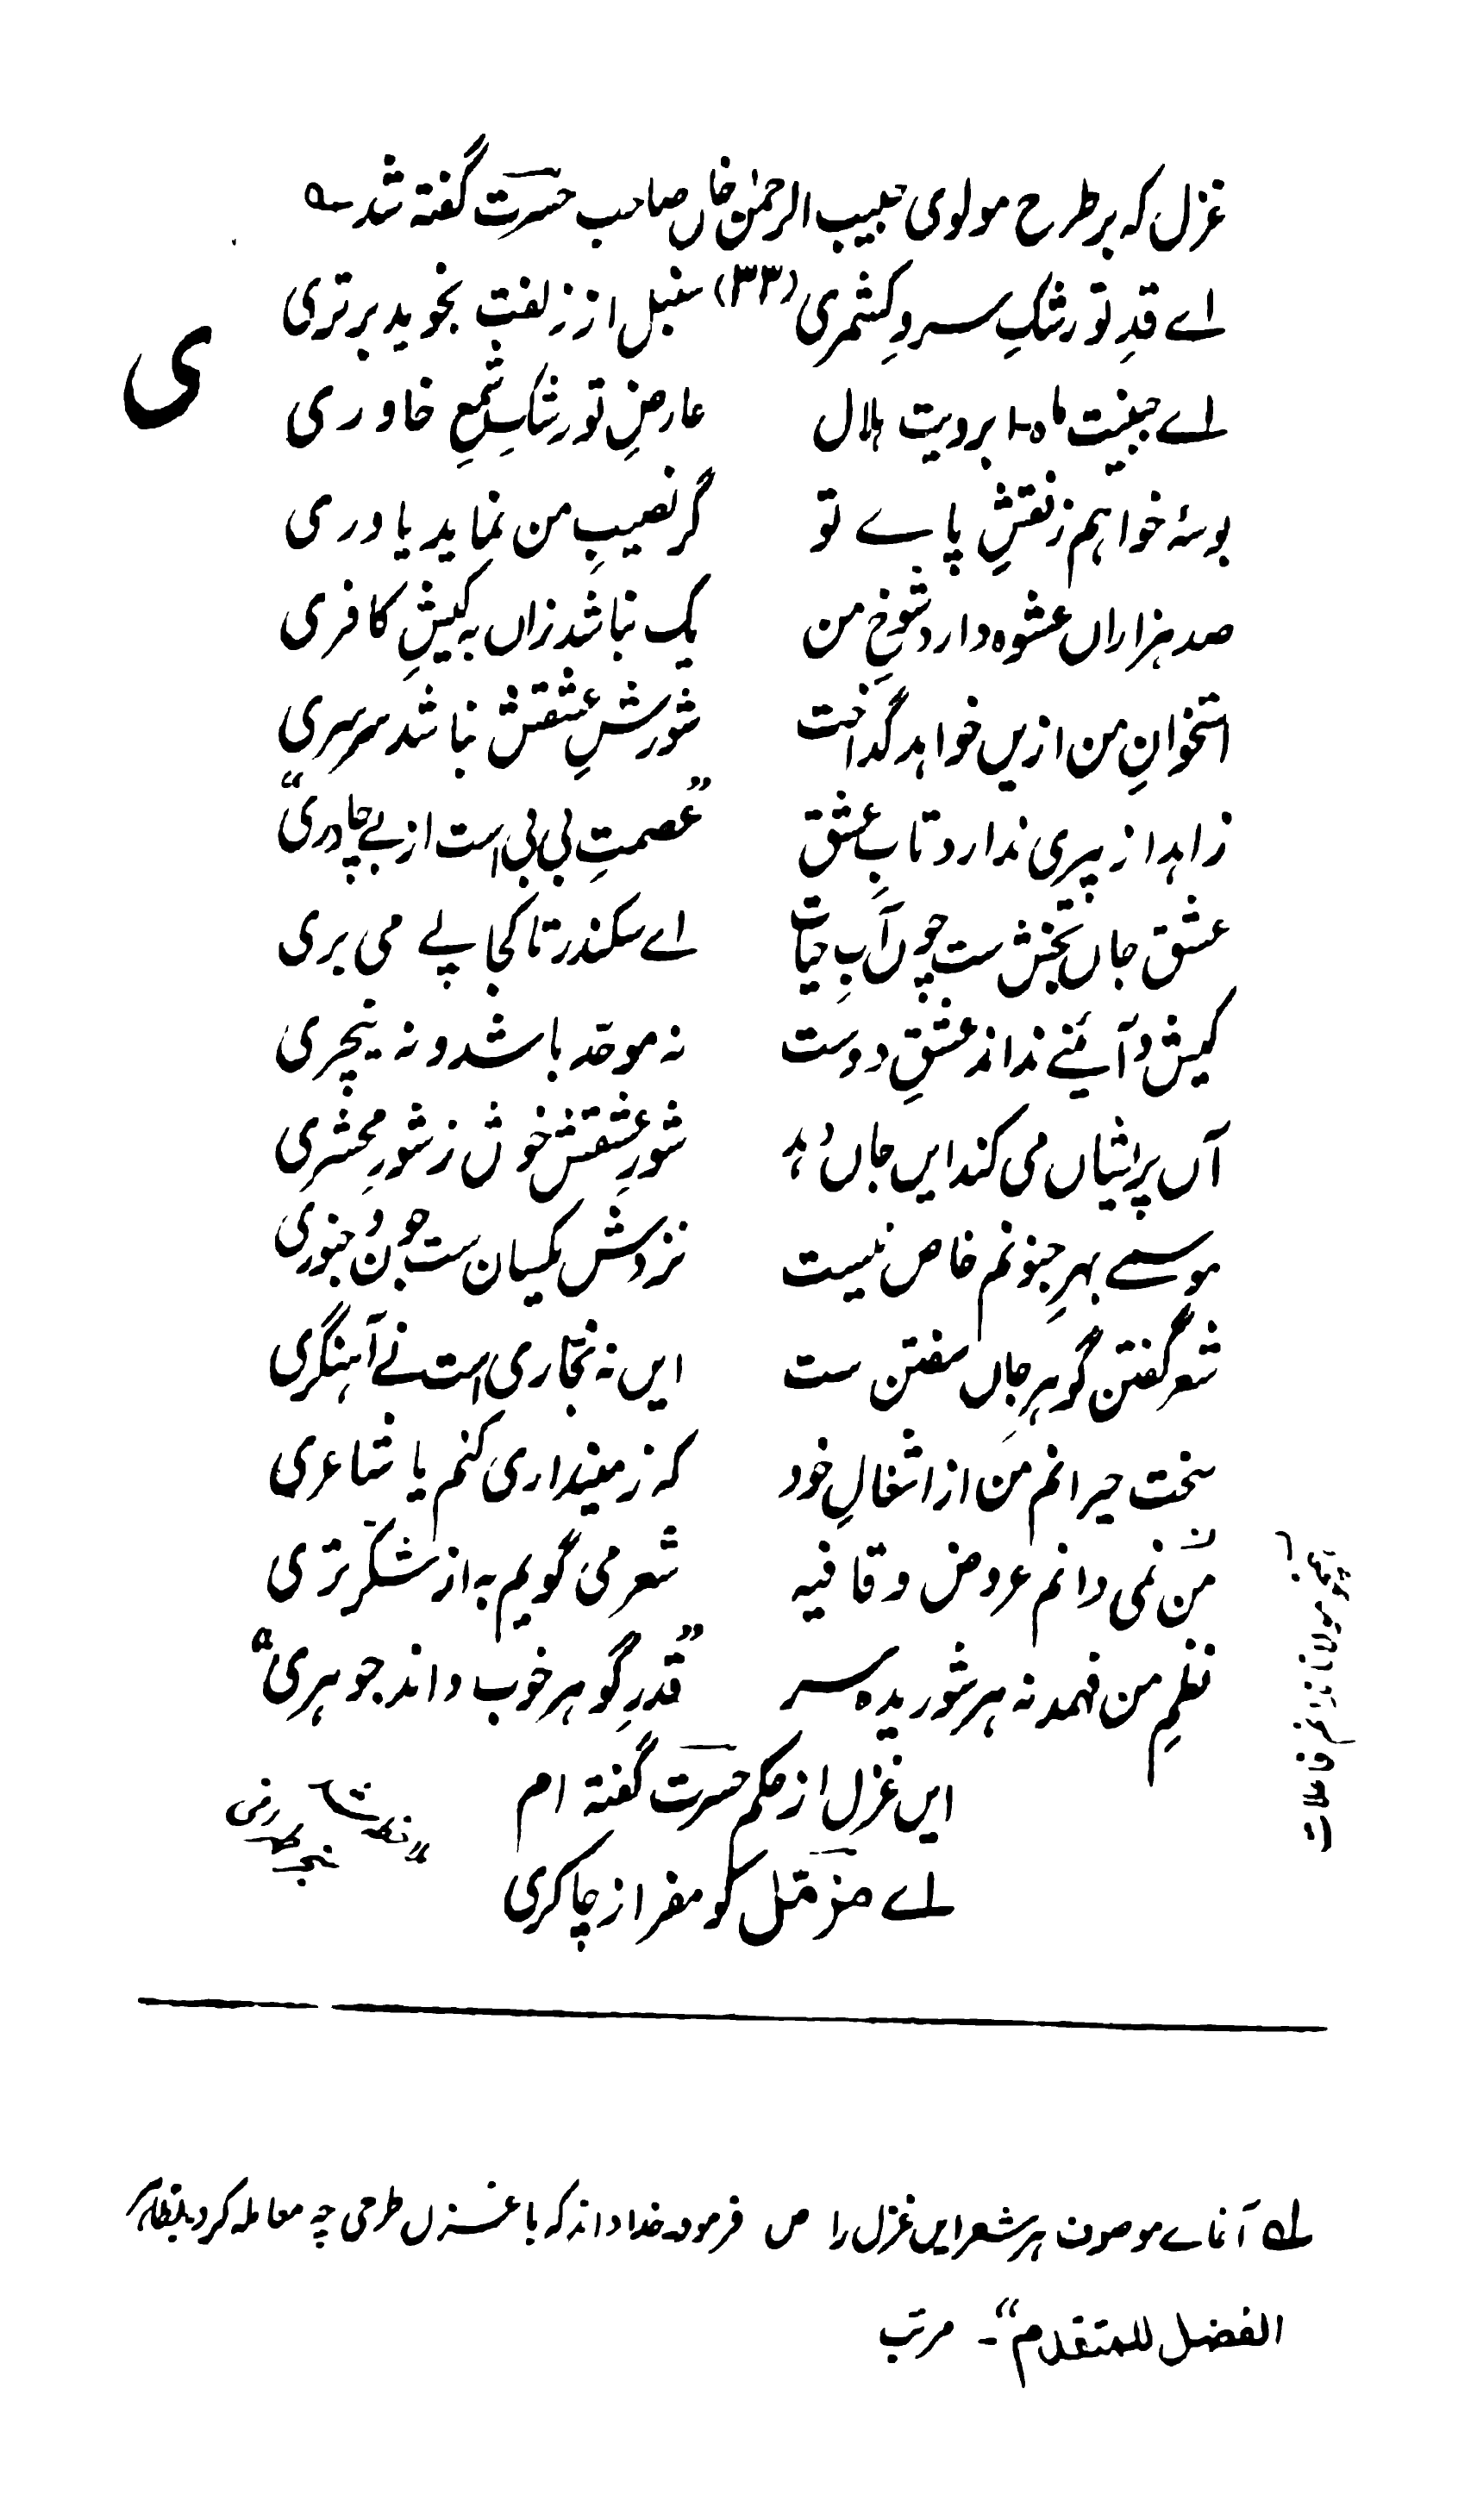 غزل که بر طرح مولوی حبیب الرحمٰن خاں صاحب حسرت گفته شد
ی
اے قدِ تو رشکِ سروِ کشمری (۳۳) سنبل از زلفت بجوید برتری
اے جبینت ماه و ابرویت ہلال عارضِ تو رشکِ شمعِ خاوری
بوسۂ خواہم ز نقشِ پاے تو گر نصیبِ من نماید یاوری
صد ہزاراں عشوه دارد شوخِ من یک نباشد زاں بہ کیشِ کافری
استخوانِ من ازیں خواہد گداخت شورشِ عشقش نباشد سرسری
زاہد از پیری ندارد تابِ عشق "عصمتِ بی بی ست از بے چادری"
عشق جاں بخش ست چوں آبِ حیات اے سکندر تا کجا پے می بری
کیش و آئینے نداند عشقِ دوست نہ موحد باشد و نہ نیچری
آں پریشاں می کند ایں جاں دہد شورِ عشقش خوش ز شورِ محشری
موسمے بہرِ جنونم خاص نیست نزدش یکساں ست جون و جنوری
شعر گفتن گوہرِ جاں سفتن ست ایں نہ نجاری ست نے آہنگری
سخت حیرانم من از اشغالِ خود کہ زمینداری کنم یا شاعری
من نمی دانم عروض و قافیہ شعر می گویم بہ از شکر تری
نظمِ من فہمد نہ ہر شوریده سر "قدرِ گوہر خوب داند جوہری"
ایں غزل از حکمِ حسرت گفتہ ام
اے مزمل کو مفر از چاکری
لہ آقاے موصوف ہر شعر ایں غزل را ص فرموده خدا داند کہ با غزل طرحی چہ معاملہ کرده باشد
الفضل للمتقدم"۔ مرتب